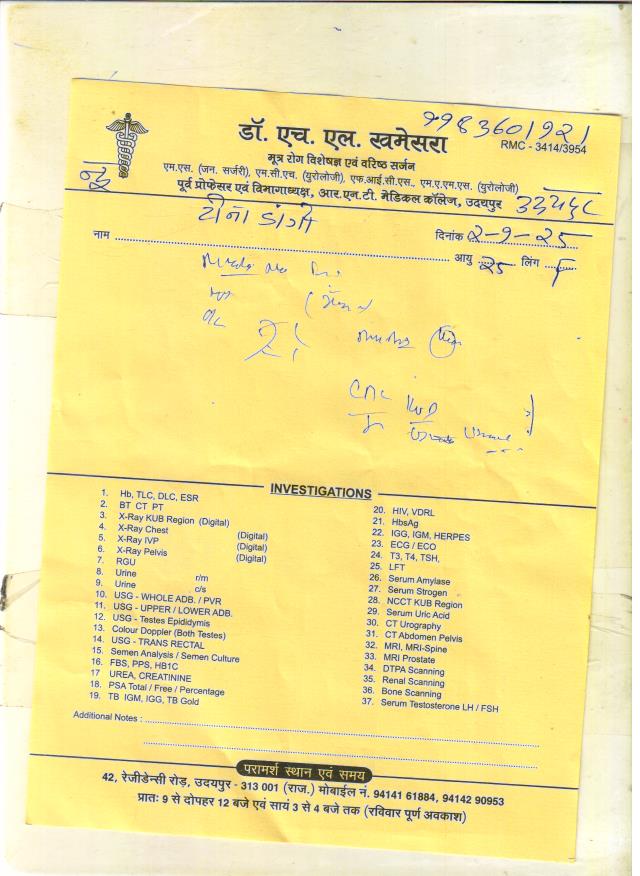 9983601921
डॉ. एच. एल. खमेसरा
RMC - 3414/3954
मूत्र रोग विशेषज्ञ एवं वरिष्ठ सर्जन
एम.एस. (जन. सर्जरी), एम.सी.एच. (यूरोलोजी), एफ.आई.सी.एस., एम.ए.एम.एस. (यूरोलोजी)
पूर्व प्रोफेसर एवं विभागाध्यक्ष, आर.एन.टी. मेडिकल कॉलेज, उदयपुर
टीना डांगी
दिनांक २-9-25
नाम
आयु 25 लिंग F
INVESTIGATIONS
1. Hb, TLC, DLC, ESR
2. BT CT PT
3. X-Ray KUB Region (Digital)
4. X-Ray Chest (Digital)
5. X-Ray IVP (Digital)
6. X-Ray Pelvis (Digital)
7. RGU
8. Urine r/m
9. Urine c/s
10. USG - WHOLE ADB. / PVR
11. USG - UPPER / LOWER ADB.
12. USG - Testes Epididymis
13. Colour Doppler (Both Testes)
14. USG - TRANS RECTAL
15. Semen Analysis / Semen Culture
16. FBS, PPS, HB1C
17 UREA, CREATININE
18. PSA Total / Free / Percentage
19. TB IGM, IGG, TB Gold
20. HIV, VDRL
21. HbsAg
22. IGG, IGM, HERPES
23. ECG / ECO
24. T3, T4, TSH,
25. LFT
26. Serum Amylase
27. Serum Strogen
28. NCCT KUB Region
29. Serum Uric Acid
30. CT Urography
31. CT Abdomen Pelvis
32. MRI, MRI-Spine
33. MRI Prostate
34. DTPA Scanning
35. Renal Scanning
36. Bone Scanning
37. Serum Testosterone LH / FSH
Additional Notes :
परामर्श स्थान एवं समय
42, रेजीडेन्सी रोड़, उदयपुर - 313 001 (राज.) मोबाईल नं. 94141 61884, 94142 90953
प्रातः 9 से दोपहर 12 बजे एवं सायं 3 से 4 बजे तक (रविवार पूर्ण अवकाश)